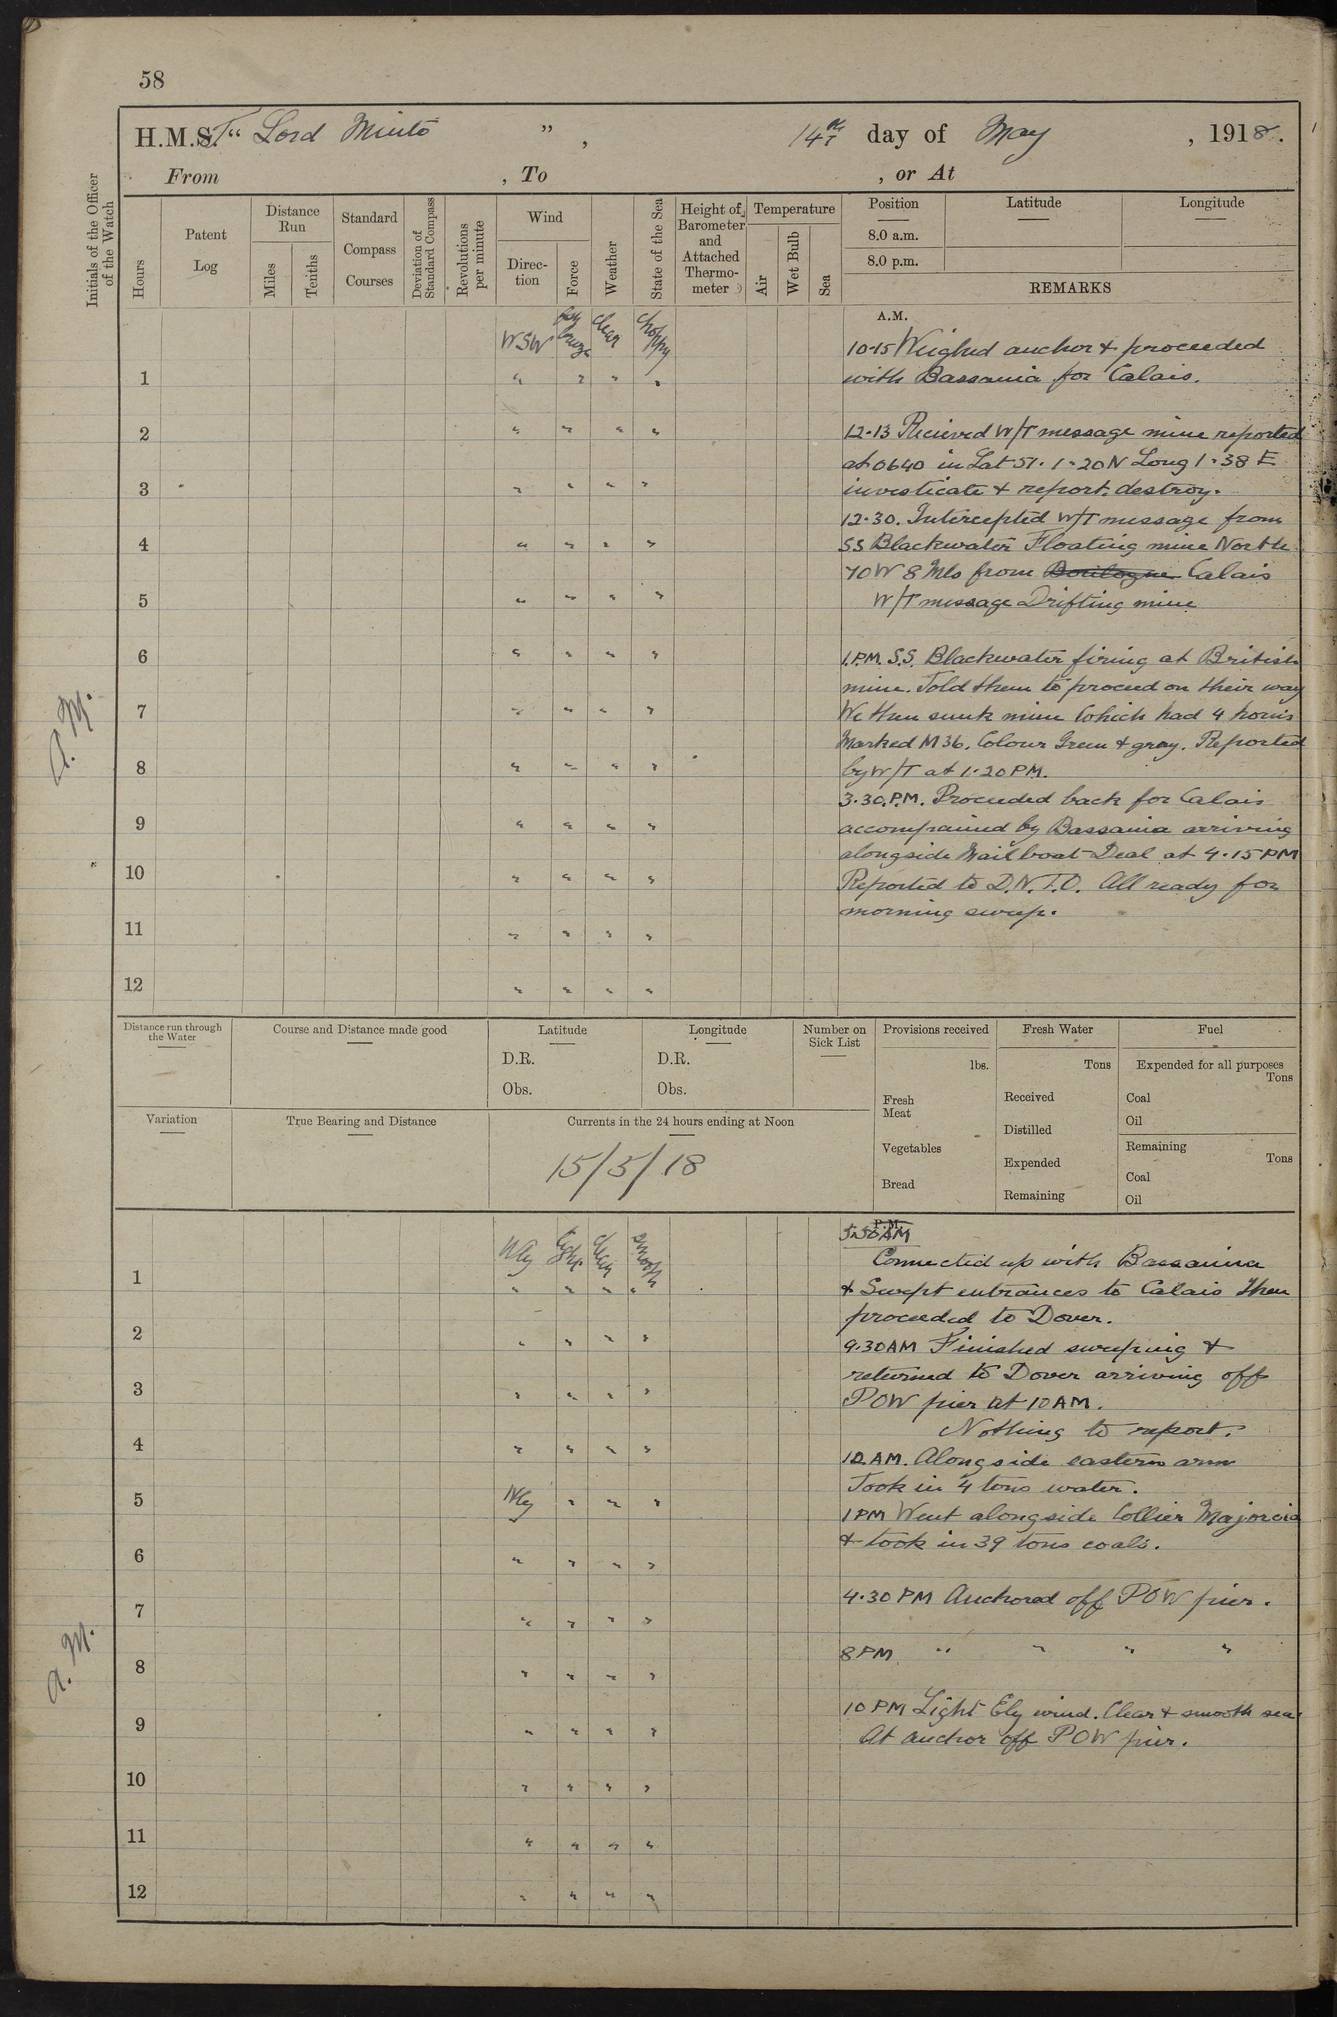 58
H.M.S.T. " Lord Minto " , 14th day of May , 1918.
From , To , or At
Initials of the Officer of the Watch
Hours
Patent Log
Distance Run
Miles
Tenths
Standard Compass Courses
Deviation of Standard Compass
Revolutions per minute
Wind
Direction
Force
Weather
State of the Sea
Height of Barometer and Attached Thermometer
Temperature
Air
Wet Bulb
Sea
Position
Latitude
Longitude
8.0 a.m.
8.0 p.m.
REMARKS
A.M.
WSW breeze clear choppy
10-15 Weighed anchor & proceeded
1 " " " " with Bassania for Calais.
2 " " " " 12-13 Recieved W/T message mine reported
at 0640 in Lat 51. 1-20N Long 1-38 E
3 " " " " investicate & report. destroy.
12-30. Intercepted W/T message from
4 " " " " SS Blackwater Floating mine North
70W 8 Mls from Boulogne Calais
5 " " " " W/T message Drifting mine
6 " " " " 1.P.M. S.S. Blackwater firing at British
mine. Told them to proceed on their way
7 " " " " We then sunk mine which had 4 horns
Marked M36. Colour Green & gray. Reported
8 " " " " by W/T at 1-20PM.
3-30.P.M. Proceeded back for Calais
9 " " " " accompanied by Bassania arriving
alongside Mail boat Deal at 4-15PM
10 " " " " Reported to D.N.T.O. All ready for
morning sweep.
11 " " " "
12 " " " "
A.M.
Distance run through the Water
Course and Distance made good
Latitude
D.R.
Obs.
Longitude
D.R.
Obs.
Number on Sick List
Provisions received
lbs.
Fresh Meat
Vegetables
Bread
Fresh Water
Tons
Received
Distilled
Expended
Remaining
Fuel
Expended for all purposes
Tons
Coal
Oil
Remaining
Tons
Coal
Oil
Variation
True Bearing and Distance
Currents in the 24 hours ending at Noon
15/5/18
P.M.
5.30AM
Wly Light clear smooth
Connected up with Bassania
1 " " " " & Swept entrances to Calais then
proceeded to Dover.
2 " " " " 9.30AM Finished sweeping &
returned to Dover arriving off
3 " " " " POW pier at 10AM.
Nothing to report.
4 " " " " 10.AM. Alongside eastern arm
Took in 4 tons water.
5 Nly " " " 1PM Went alongside Collier Majorcia
& took in 39 tons coals.
6 " " " "
4.30 PM Anchored off POW pier.
7 " " " "
8PM " " " "
8 " " " "
10 PM Light Ely wind. Clear & smooth sea
9 " " " " At anchor off POW pier.
10 " " " "
11 " " " "
12 " " " "
A.M.